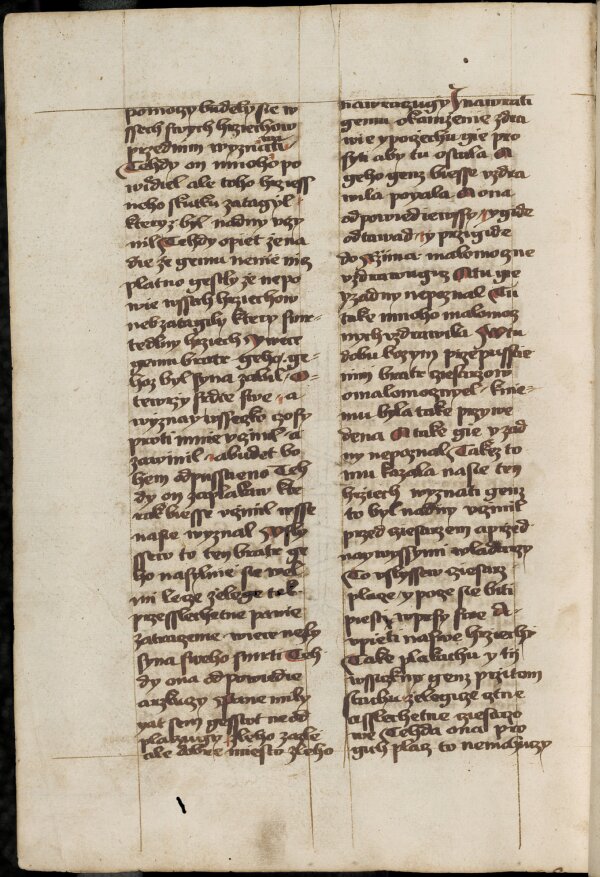 pomoczy budely sie w
ssech swych hrziechow
przednim wyznati
Tehdy on mnoho po
wiediel ale toho hrziess
neho skutku zatagyl
kteryz byl nadny vczy
nil Tehdy opiet zena
die ze gemu nenie nicz
platno gestly ze nepo
wie wssech hrziechow
neb zatagily ktery smr-
tedlny hrziech Y wece
gemu bratr geho ge-
hoz byl syna zabil O-
tewrzy srdce swe a
wyznay wsseczko czosy
proti mnie vczinil a
zawinil a budet bo
hem odpusstieno Teh
dy on zaplakaw kte
rak biesse vczinil wsse
nasie wyznal Vsly
ssew to ten bratr ge
ho nasylnie sie wel-
mi lecze zelege tak
przesslechetne panie
zatraczenie wiece nezly
syna sweho smrti Teh
dy ona odpowiedie
arzkuczy Pane mily
yat sem gesstot ne od
placzugy zleho zazle
ale dobre miesto zleho
nawraczugy I nawrati
gemu obraczenie zdra
wie y poczechu gie pro
syti aby tu ostala A
geho genz biesse vzdra
wila poyala A ona
odpowiediewssy y gide
odtawad y przigide
do Rzima malomoczne
vzdrawugicz A tu gie
yzadny nepoznal Tu
take mnoho malomocz
nych vzdrawila W tu
dobu kozym przepusstie
nim bratr ciesarzow
omalomoczniel k nie-
mu byla take przywe
dena A take gie yzad
ny nepoznal Takez to
mu kazala nasie ten
hrziech wyznati genz
to byl nadny vczinil
przed ciesarzem a przed
naywyssymi wladarzy
To vslyssew ciesarz
placze y pocze sie biti
piesti w prsy swe a
vpieti nazwe hrziechy
Take plakachu y tij
wssiczkny genz przitom
stachu zelegicze ctne
a sslechetne ciesarzo
we Tehda ona pro
gich placz to nemohuczy